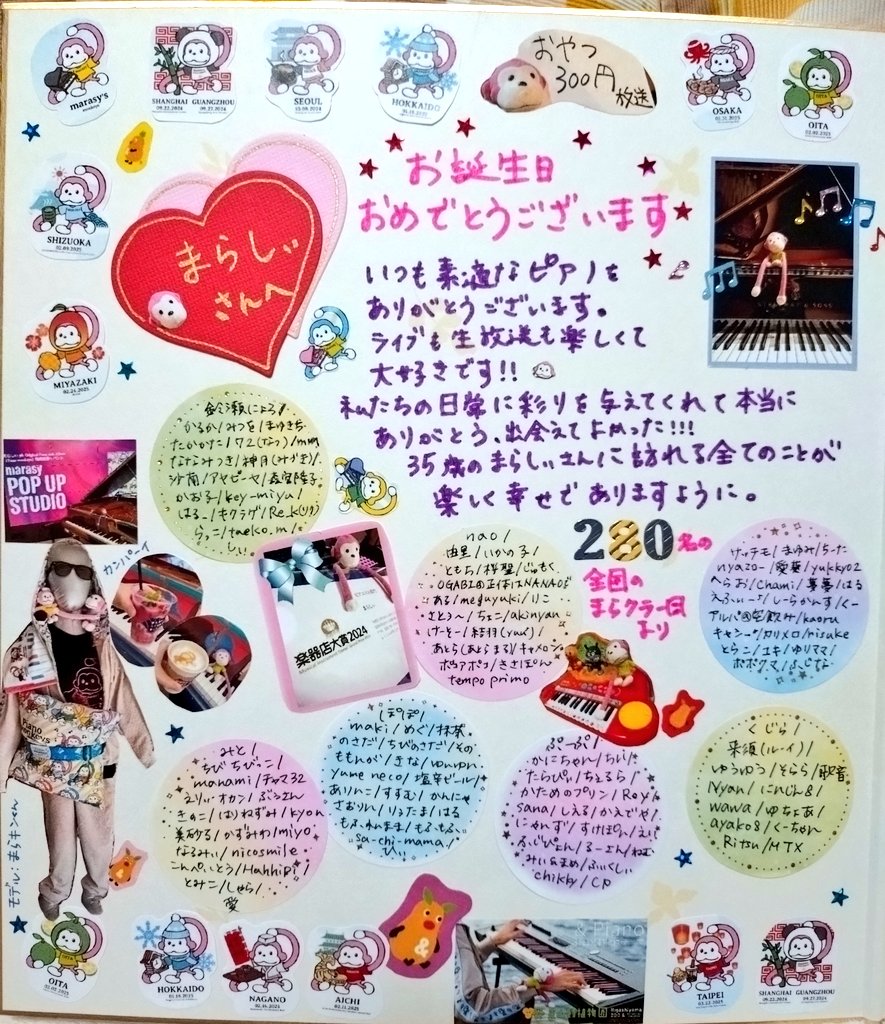 marasy's
SHANGHAI GUANGZHOU
09.22.2024 09.27.2024
SEOUL
HOKKAIDO
おやつ
300円
放送
OSAKA
OITA
お誕生日
おめでとうございます
SHIZUOKA
02.09.2025
まらしぃ
さんへ
いつも素適なピアノを
ありがとうございます。
ライブも生放送も楽しくて
大好きです!!
MIYAZAKI
私たちの日常に彩りを与えてくれて本当に
ありがとう、出会えてよかった!!!
35歳のまらしぃさんに訪れる全てのことが
楽しく幸せでありますように。
かるか/みつを/まゆきち
ななみつき/神月(みづき)/
かお子/key-miyu/
はるー/キクラゲ/Re_k(りく)
らっこ/taeko.m/
しぃ
marasy
POP UP
STUDIO
カンパーイ
楽器店大賞2024
280名の
全国の
まらクラ一同
より
nao/
由里/いかの子/
OGABIの正体はNANAOさ
ある/meguyuki/りこ
さとう〜/ちょこ/akinyan
げーそー/結羽(yuu)/
あとら(あとらまる)/キャメロン
ポコアポコ/ささぽん/
tempo primo
サッチモ/まゆみ/ちーた
nyazo-/愛華/yukky02
へらお/Chami/夢夢/はる
えふぃーず/しーらかんす/くー
キャンプ/カリメロ/risuke
とらこ/ユキ/ゆりママ/
ポポクマ/ふじな
みと/
ちびちびっこ/
manami/チャマ32
えりぃ/オカン/ぶぅさん
きのこ/はりねずみ/kyon
美砂る/かずみわ/miyo
なるみぃ/nicosmile
こんぺいとう/Hahhipi/
とみこ/しゃら/
愛
ぽぽ/
maki/めぐ/抹茶
のさだ/ちびのさだ/その
ももんが/きな/
yume neco/塩辛ビール/
ありんこ/すすむ/かんにゃ
さおりん/りぅたま/はる
sa-chi-mama/
ぴぃ
ぷーぷ/
かにちゃん/ちい/
たらぴぃ/ちぇるら/
かためのプリン/Roy
sana/しえる/かえでや/
にゃんず/すけぽん/えい
ふじぴょん/るーさん/ねむ
みぃ&まめ/ふぃくしぃ
chikky/CP
くじら/
来須(ルーイ)/
ゆうゆう/そらら/歌音
Nyan/にんじん8/
wawa/ゆちょあ/
ayako8/くーちゃん
Ritsu/MTX
モデル:まらキンくん
OITA
HOKKAIDO
NAGANO
AICHI
&
& Piano
TAIPEI
SHANGHAI GUANGZHOU
09.22.2024 09.27.2024